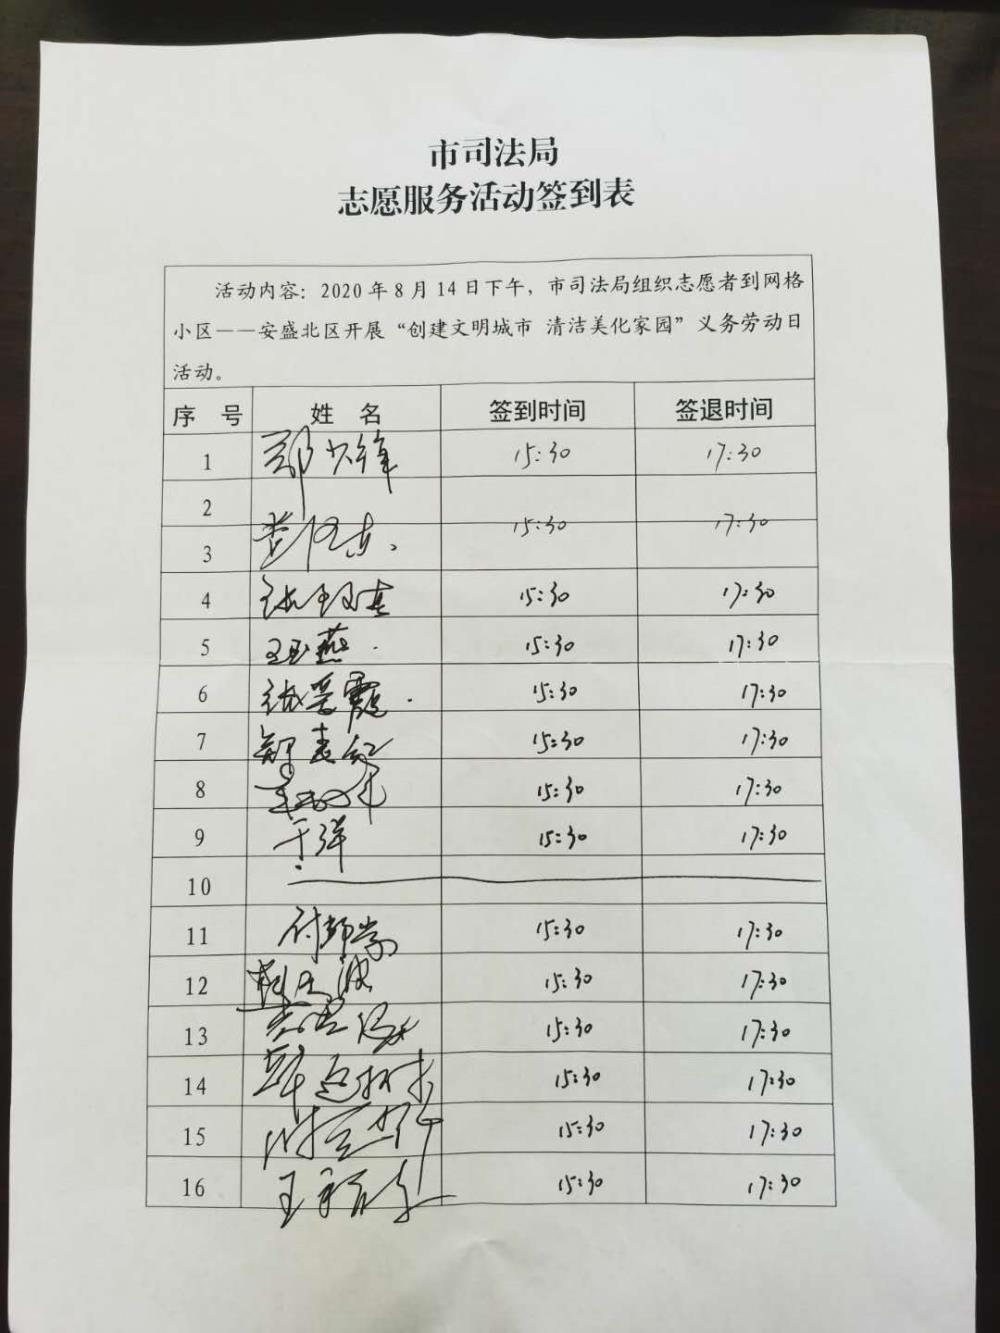 市司法局
志愿服务活动签到表
活动内容：2020年8月14日下午，市司法局组织志愿者到网格
小区——安盛北区开展“创建文明城市 清洁美化家园”义务劳动日
活动。
序 号 姓 名 签到时间 签退时间
1 郑少锋 15:30 17:30
2
15:30 17:30
3
4 15:30 17:30
5 王玉燕 15:30 17:30
6 15:30 17:30
7 15:30 17:30
8 15:30 17:30
9 于洋 15:30 17:30
10
11 15:30 17:30
12 15:30 17:30
13 15:30 17:30
14 15:30 17:30
15 15:30 17:30
16 王 15:30 17:30